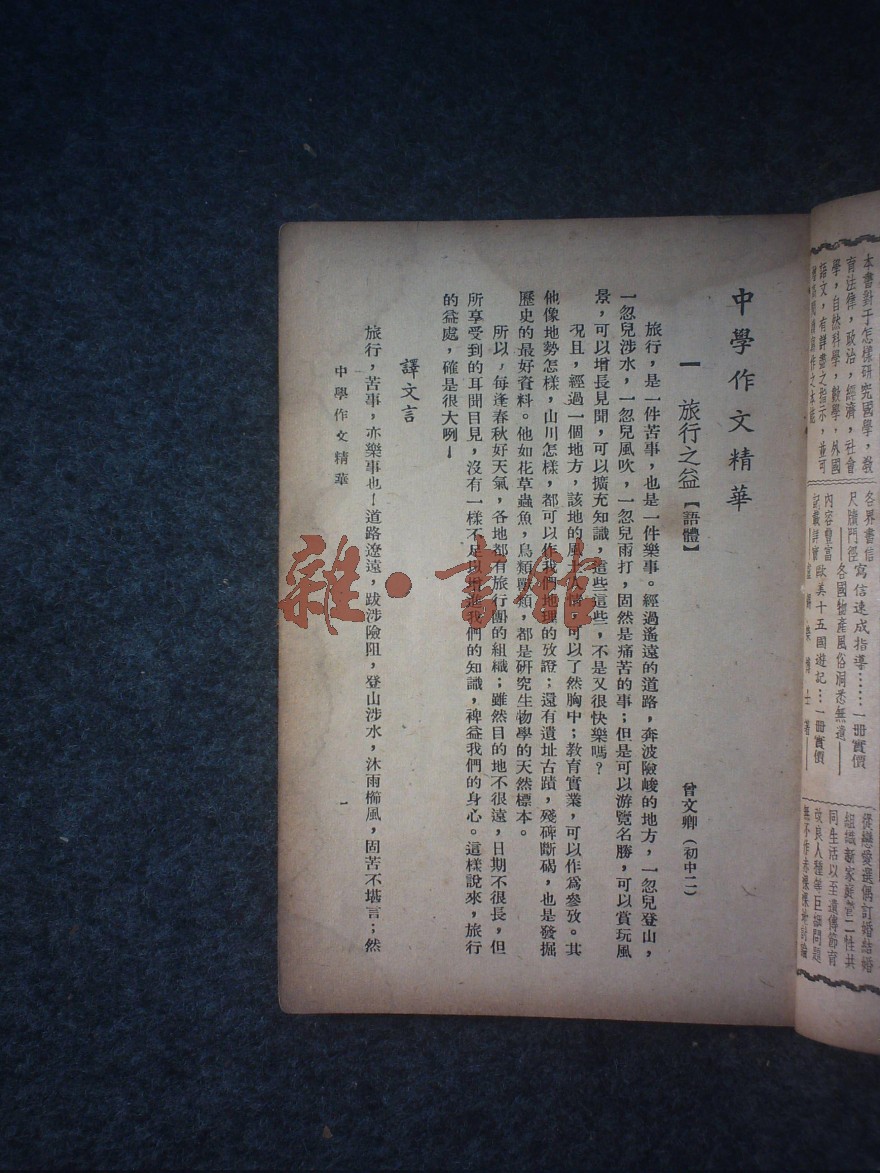 本書對于怎樣研究國學，教
育法律，政治，經濟，社會
學，自然科學，數學，外國
語文，有詳盡之指示，並可
各界書信
尺牘門徑
寫信速成指導……一冊實價
內容豐富
各國物產風俗洞悉無遺
記載詳實
歐美十五國遊記…一冊實價
從戀愛選偶訂婚結婚
組織新家庭暨二性共
同生活以至遺傳節育
改良人種等巨細問題
無不作赤裸裸地討論
中學作文精華
一 旅行之益【語體】
曾文卿（初中二）
旅行，是一件苦事，也是一件樂事。經過遙遠的道路，奔波險峻的地方，一忽兒登山，
一忽兒涉水，一忽兒風吹，一忽兒雨打，固然是痛苦的事；但是可以游覽名勝，可以賞玩風
景，可以增長見聞，可以擴充知識，這些這些，不是又很快樂嗎？
況且，經過一個地方，該地的風土人情，可以了然胸中；教育實業，可以作為參攷。其
他像地勢怎樣，山川怎樣，都可以作我們地理的攷證；還有遺址古蹟，殘碑斷碣，也是發掘
歷史的最好資料。他如花草蟲魚，鳥類獸類，都是研究生物學的天然標本。
所以，每逢春秋好天氣，各地都有旅行團的組織；雖然目的地不很遠，日期不很長，但
所享受到的耳聞目見，沒有一樣不足以增進我們的知識，裨益我們的身心。這樣說來，旅行
的益處，確是很大咧！
譯文言
旅行，苦事，亦樂事也！道路遼遠，跋涉險阻，登山涉水，沐雨櫛風，固苦不堪言；然
中學作文精華
一
雜·書館